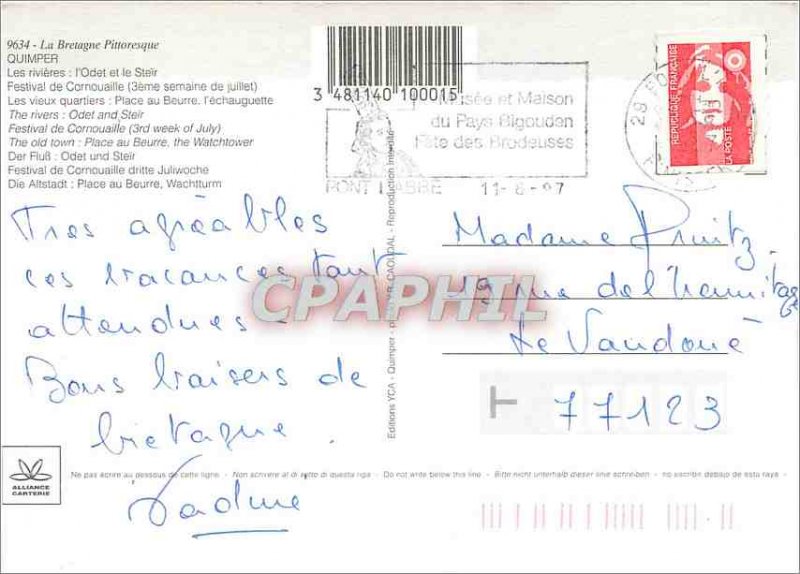 9634 - La Bretagne Pittoresque
QUIMPER
Les rivières : l'Odet et le Steïr
Festival de Cornouaille (3ème semaine de juillet)
Les vieux quartiers : Place au Beurre, l'échauguette
The rivers : Odet and Steir
Festival de Cornouaille (3rd week of July)
The old town : Place au Beurre, the Watchtower
Der Fluß : Odet und Steïr
Festival de Cornouaille dritte Juliwoche
Die Altstadt : Place au Beurre, Wachtturm
3 481140 100015
Musée et Maison
du Pays Bigouden
Fête des Brodeuses
PONT L'ABBE 11-8-97
RÉPUBLIQUE FRANÇAISE
LA POSTE
Très agréables
ces vacances tant
attendues -
Bons baisers de
bretagne.
Editions YCA - Quimper - Reproduction interdite
CPAPHIL
Madame
19 rue de l'hermitage
Le Vaudoué
77123
ALLIANCE
CARTERIE
Ne pas écrire au dessous de cette ligne - Non scrivere al di sotto di questa riga - Do not write below this line - Bitte nicht unterhalb dieser linie schreiben - no escribir debajo de esta raya -